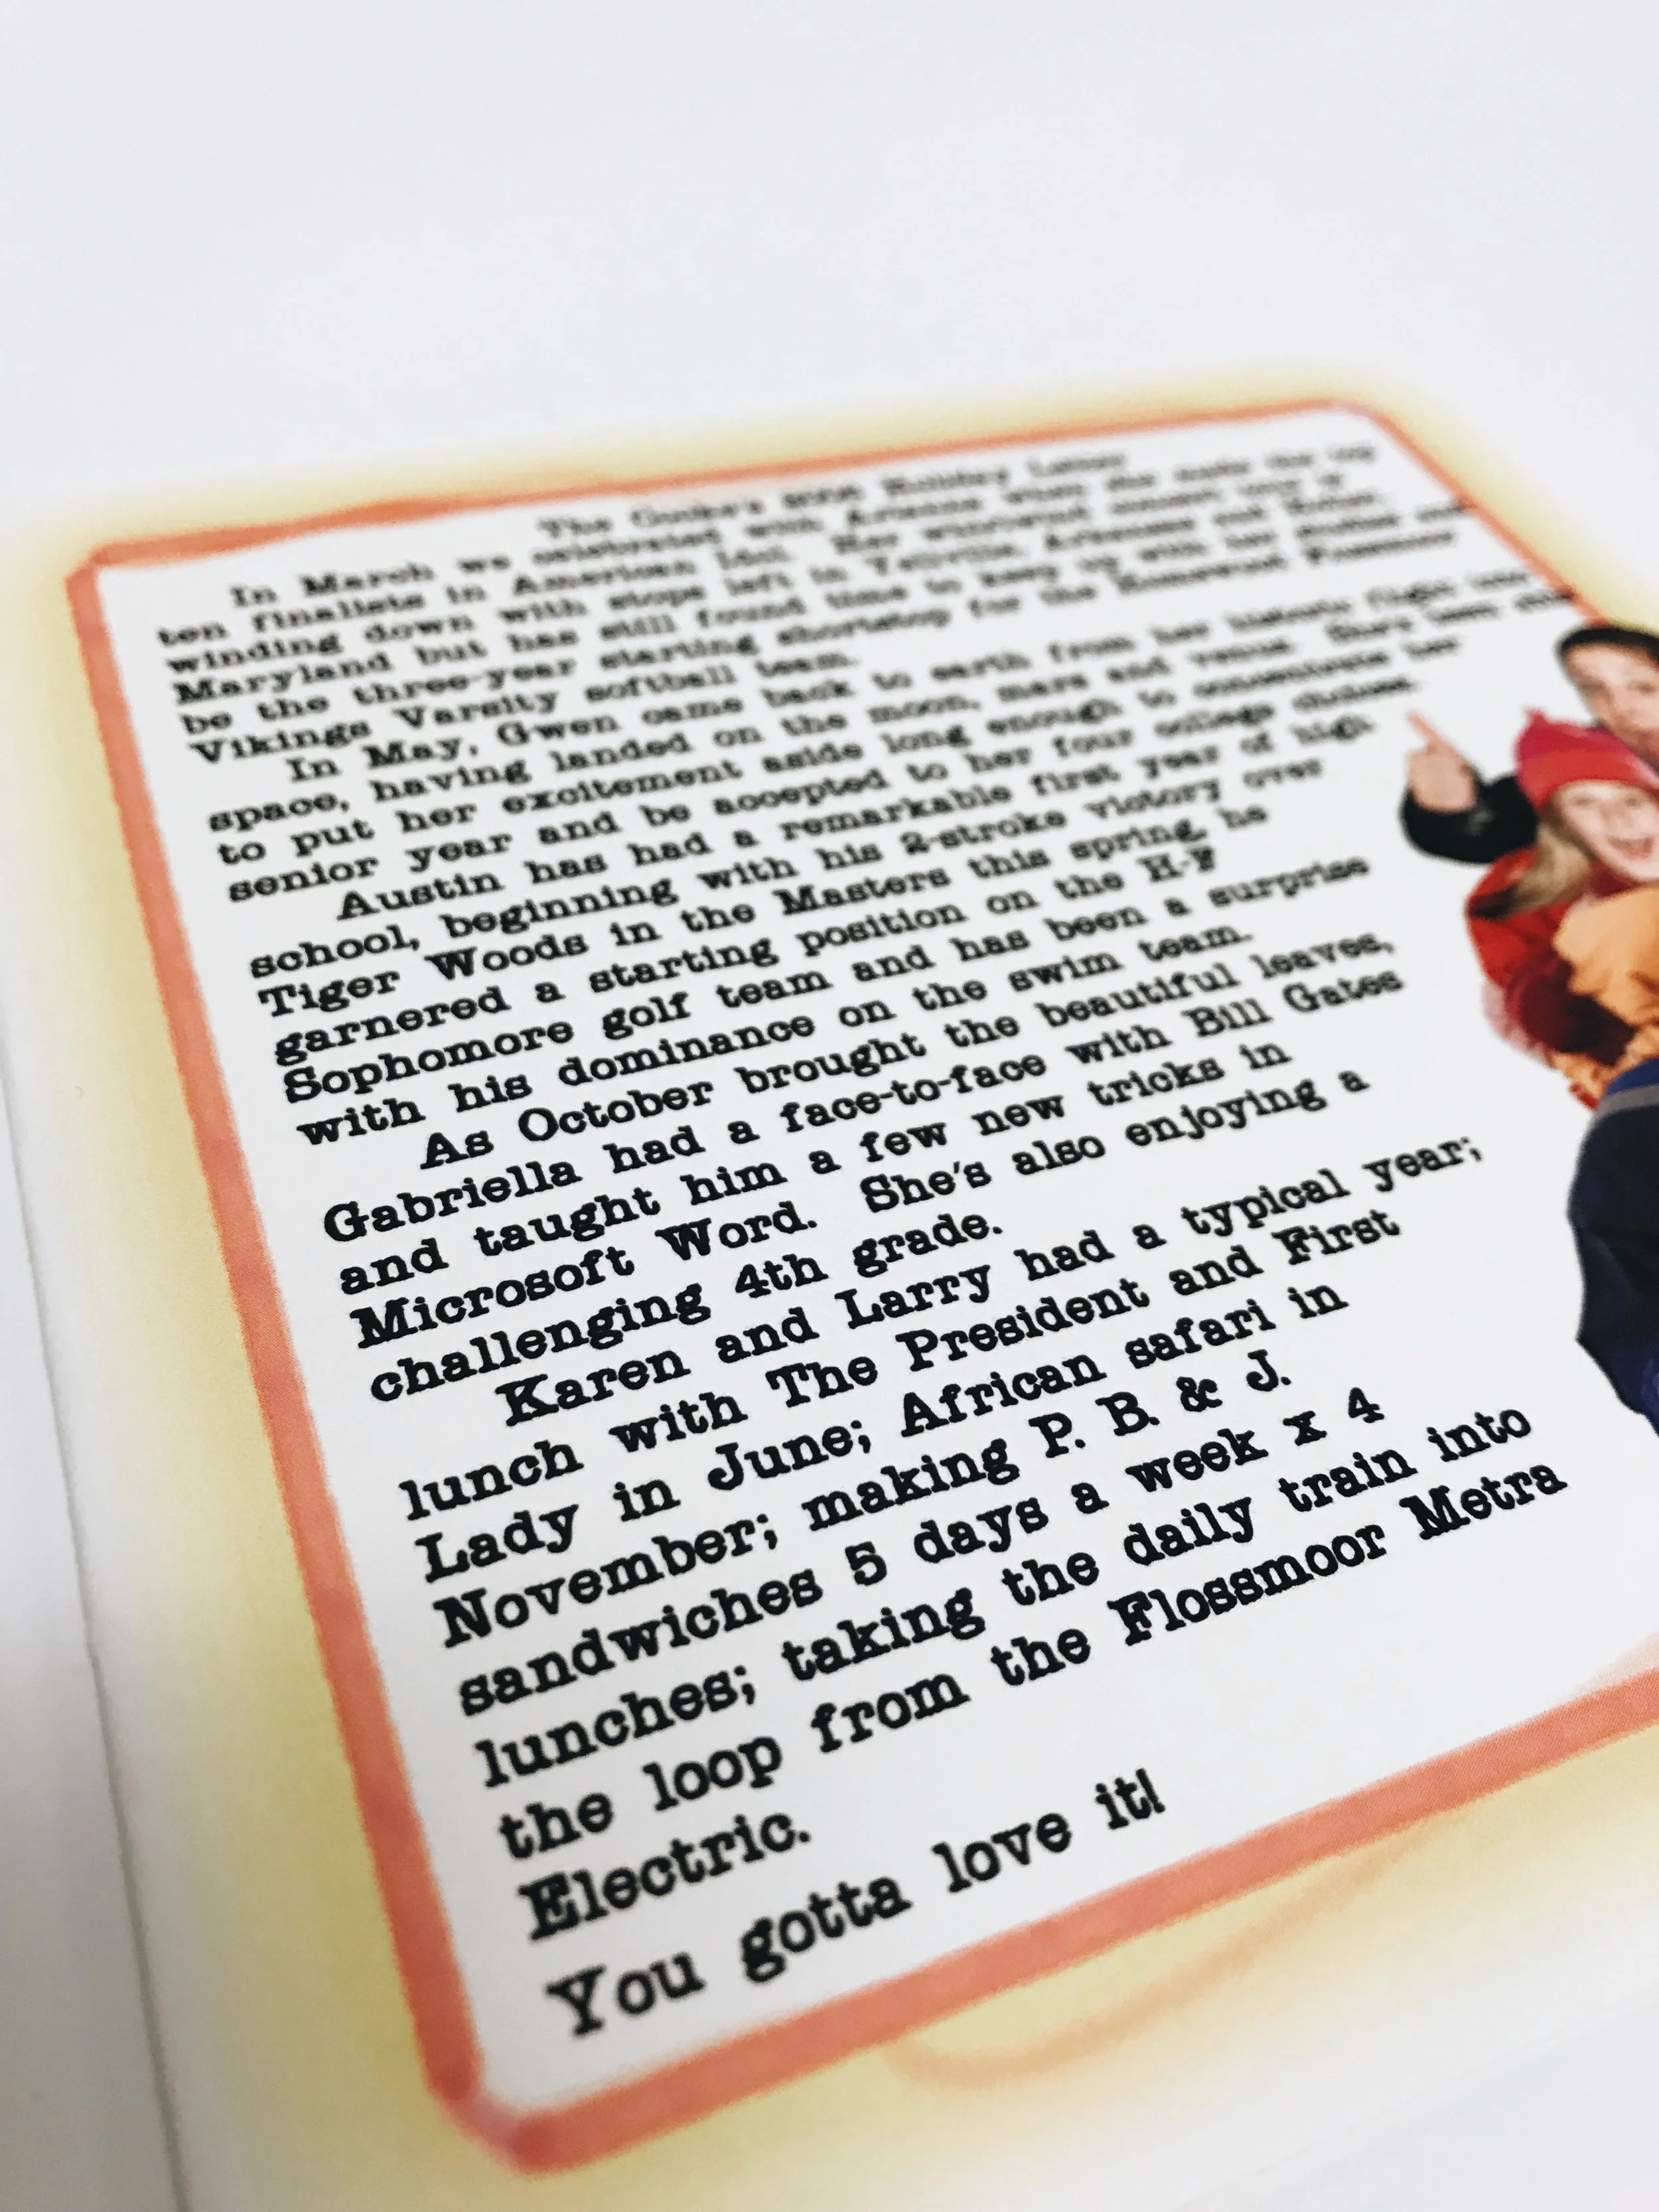 The Cooke's 2006 Holiday Letter
In March we celebrated with Arianne when she made the top
ten finalists in American Idol. Her whirlwind concert tour is
winding down with stops left in Yellville, Arkansas and
Maryland but has still found time to keep up with her studies and
be the three-year starting shortstop for the Homewood Flossmoor
Vikings Varsity softball team.
In May, Gwen came back to earth from her historic flight into
space, having landed on the moon, mars and venus. She's been able
to put her excitement aside long enough to concentrate her
senior year and be accepted to her four college choices.
Austin has had a remarkable first year of high
school, beginning with his 2-stroke victory over
Tiger Woods in the Masters this spring, he
garnered a starting position on the H-F
Sophomore golf team and has been a surprise
with his dominance on the swim team.
As October brought the beautiful leaves,
Gabriella had a face-to-face with Bill Gates
and taught him a few new tricks in
Microsoft Word. She's also enjoying a
challenging 4th grade.
Karen and Larry had a typical year;
lunch with The President and First
Lady in June; African safari in
November; making P. B. & J.
sandwiches 5 days a week x 4
lunches; taking the daily train into
the loop from the Flossmoor Metra
Electric.
You gotta love it!